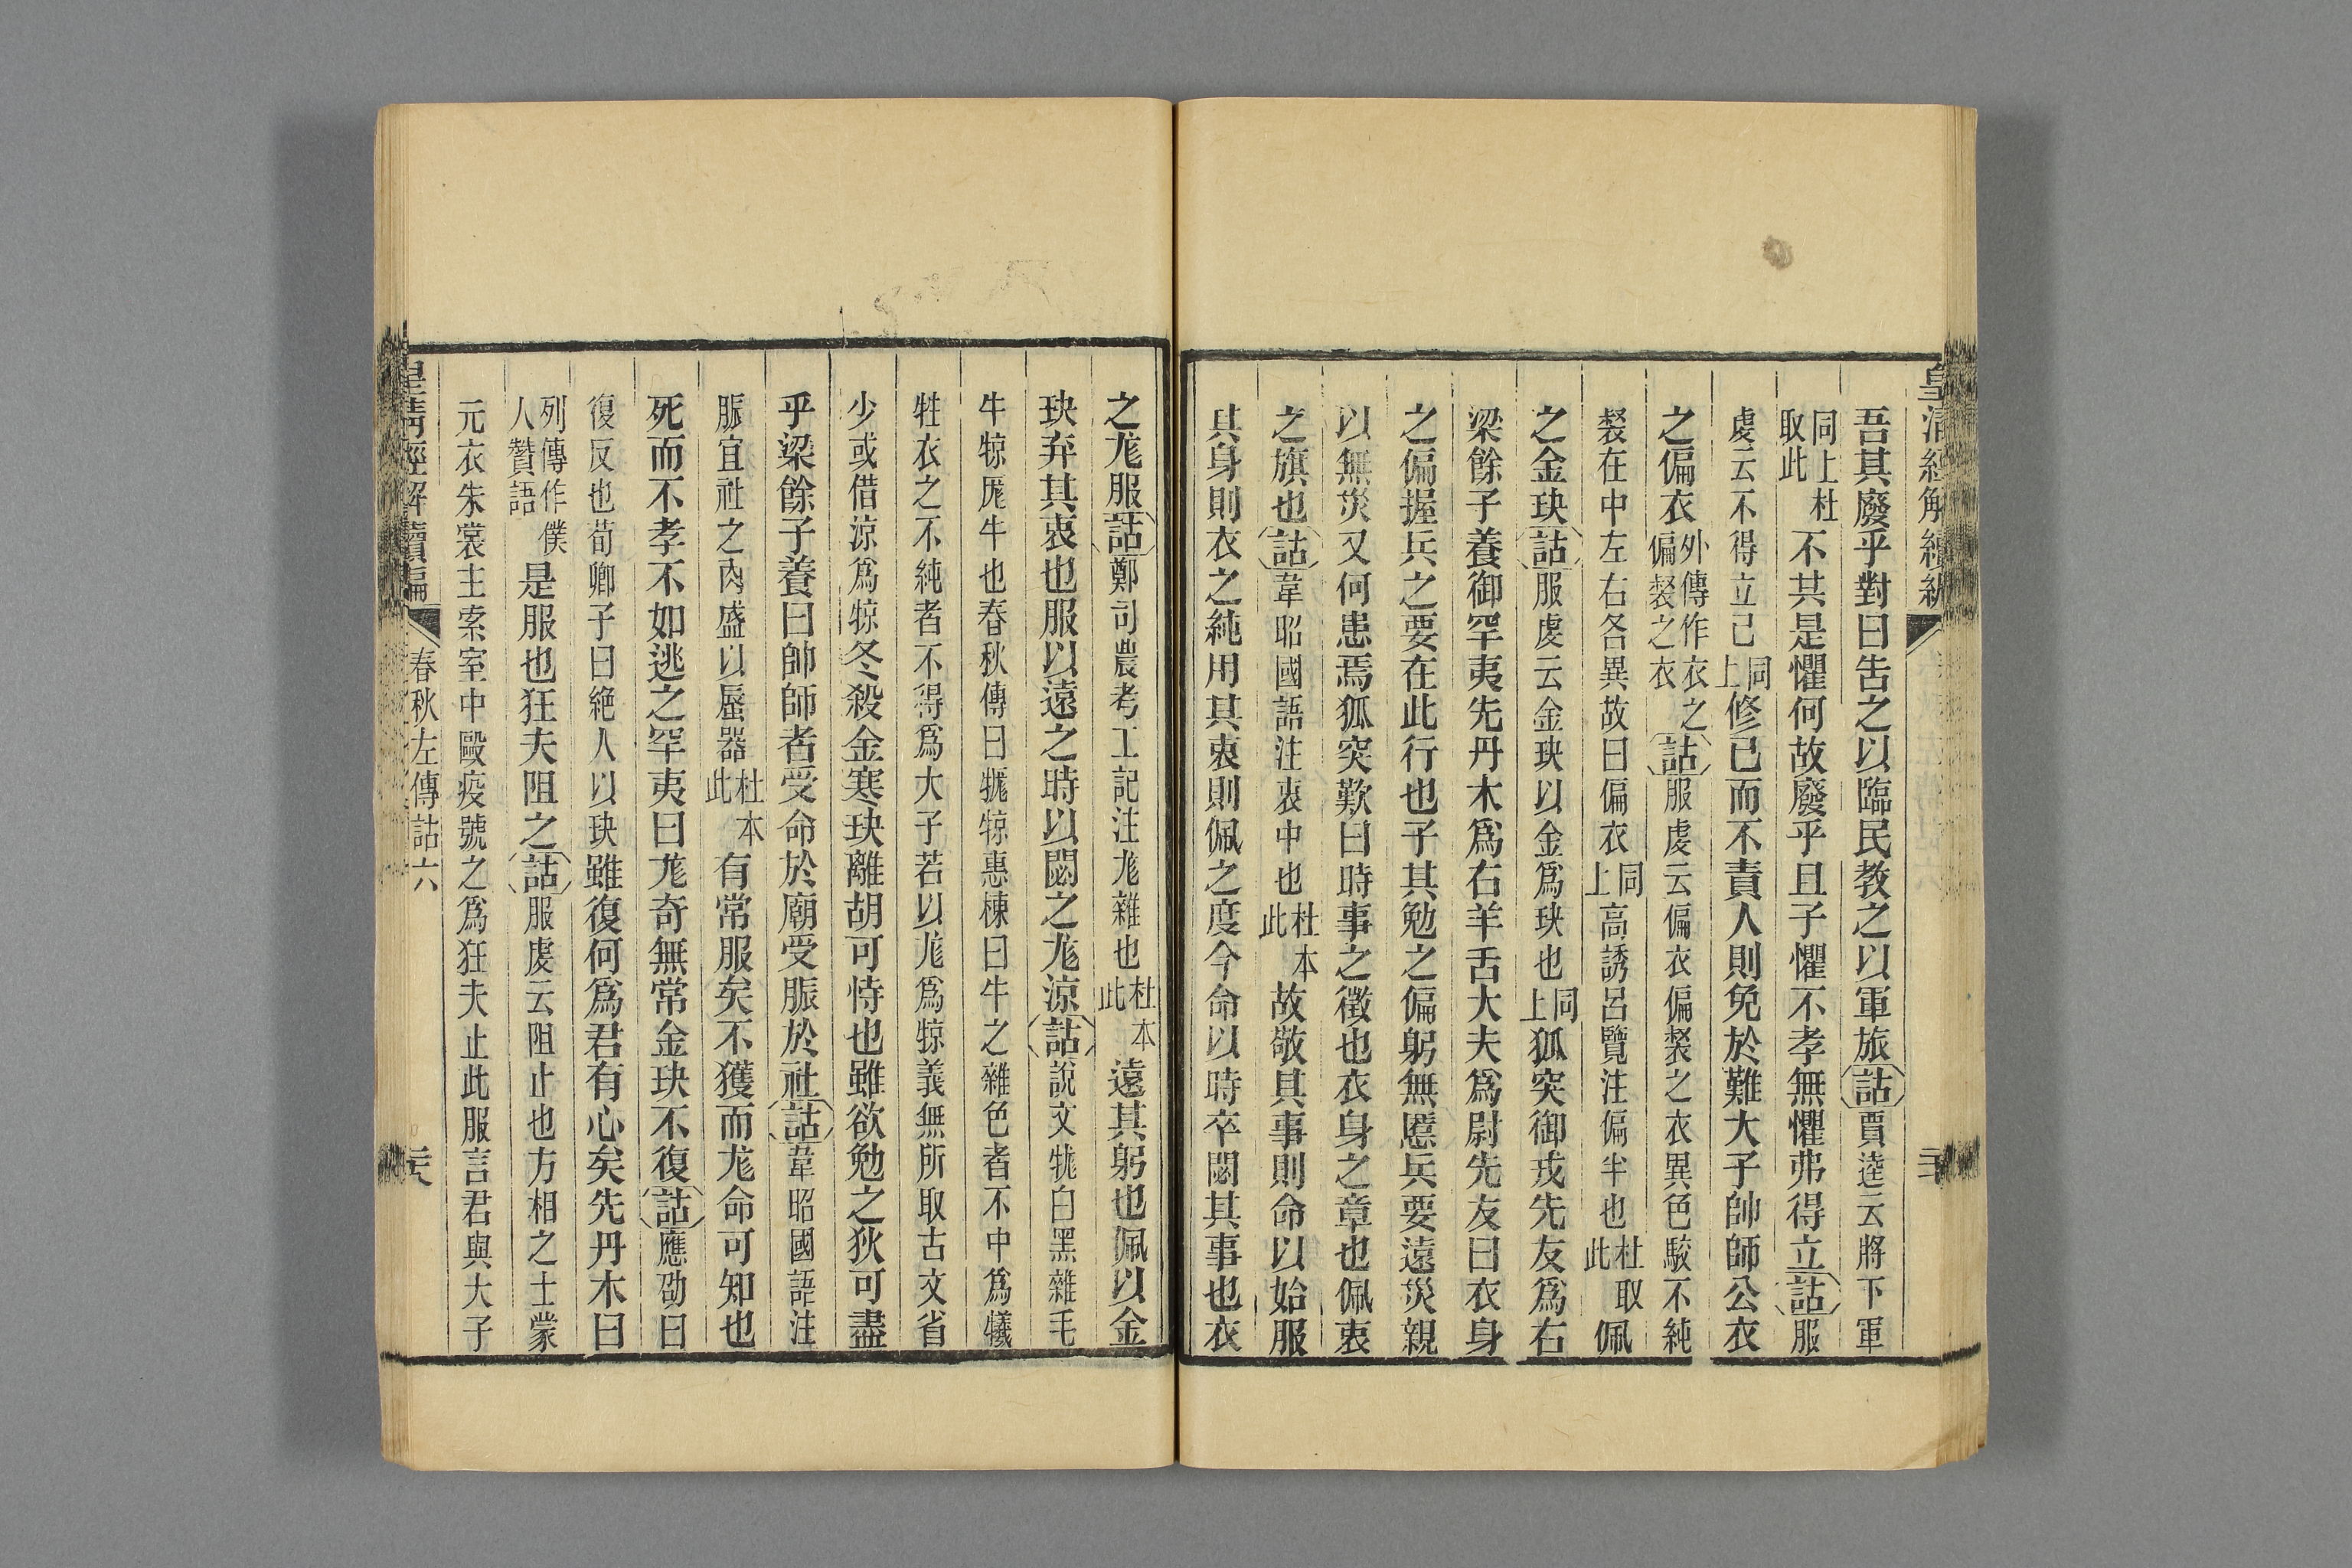 皇清經解續編
吾其廢乎對曰告之以臨民教之以軍旅詁賈逵云將下軍
同上杜取此不其是懼何故廢乎且子懼不孝無懼弗得立詁服
虔云不得立己同上修已而不責人則免於難大子帥師公衣
之偏衣外傳作衣之偏裻之衣詁服虔云偏衣偏裻之衣異色駁不純
裻在中左右各異故曰偏衣同上高誘呂覽注偏半也杜取此佩
之金玦詁服虔云金玦以金爲玦也同上狐突御戎先友爲右
梁餘子養御罕夷先丹木爲右羊舌大夫爲尉先友曰衣身
之偏握兵之要在此行也子其勉之偏躬無慝兵要遠災親
以無災又何患焉狐突歎曰時事之徵也衣身之章也佩衷
之旗也詁韋昭國語注衷中也杜本此故敬其事則命以始服
其身則衣之純用其衷則佩之度今命以時卒閟其事也衣
之尨服詁鄭司農考工記注尨雜也杜本此遠其躬也佩以金
玦弃其衷也服以遠之時以閟之尨涼詁說文牻白黑雜毛
牛㹁牻牛也春秋傳曰牻㹁惠棟曰牛之雜色者不中爲犧
牲衣之不純者不得爲大子若以尨爲㹁義無所取古文省
少或借涼爲㹁冬殺金寒玦離胡可恃也雖欲勉之狄可盡
乎梁餘子養曰帥師者受命於廟受脤於社詁韋昭國語注
脤宜社之肉盛以蜃器杜本此有常服矣不獲而尨命可知也
死而不孝不如逃之罕夷曰尨奇無常金玦不復詁應劭曰
復反也荀卿子曰絶人以玦雖復何爲君有心矣先丹木曰
列傳作僕人贊語是服也狂夫阻之詁服虔云阻止也方相之士蒙
元衣朱裳主索室中毆疫號之爲狂夫止此服言君與大子
皇清經解續編
春秋左傳詁六